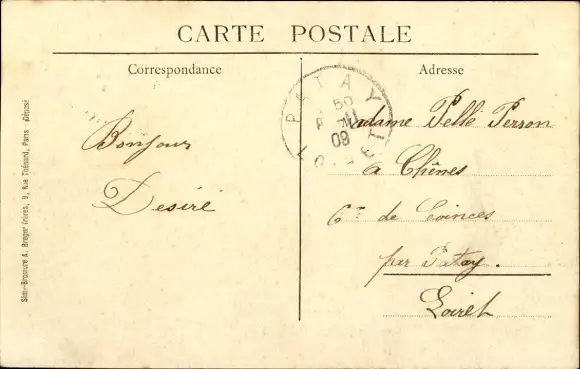 CARTE POSTALE
Correspondance
Adresse
Bonjour
Desiré
Madame Pelle Perron
à Chênes
Cne de Coinces
par Patay.
Loiret
PATAY
LOIRET
09
Simi-Bromure A. Breger frères, 9, Rue Thénard, Paris déposé